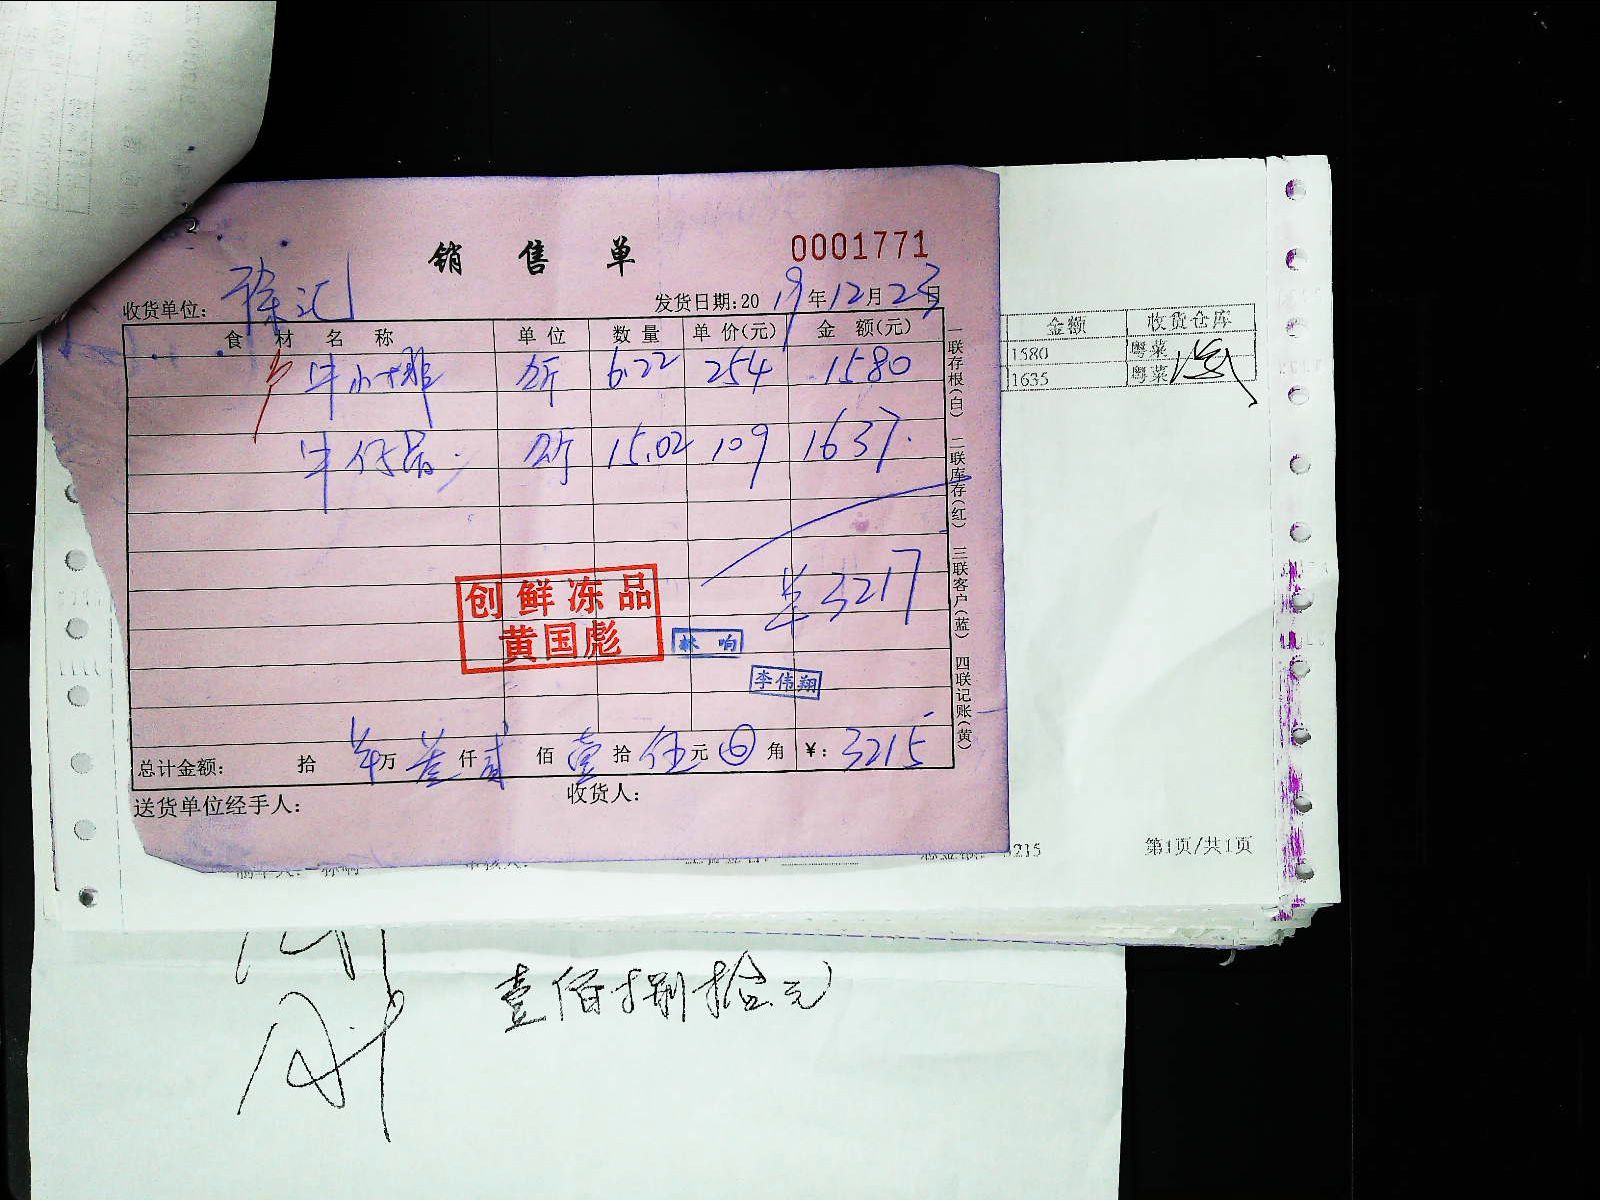 销售单 0001771
收货单位: 徐汇 发货日期:2019年12月23日
食材名称 单位 数量 单价(元) 金额(元)
牛小排 斤 6.22 254 1580
牛仔骨 斤 15.02 109 1637.
3217
创鲜冻品
黄国彪
林响
李伟翔
总计金额: 拾 万叁仟贰佰壹拾伍元 角 ¥: 3215
送货单位经手人: 收货人:
一联存根(白) 二联库存(红) 三联客户(蓝) 四联记账(黄)
金额 收货仓库
1580 粤菜
1635 粤菜
215
第1页/共1页
壹佰捌拾元